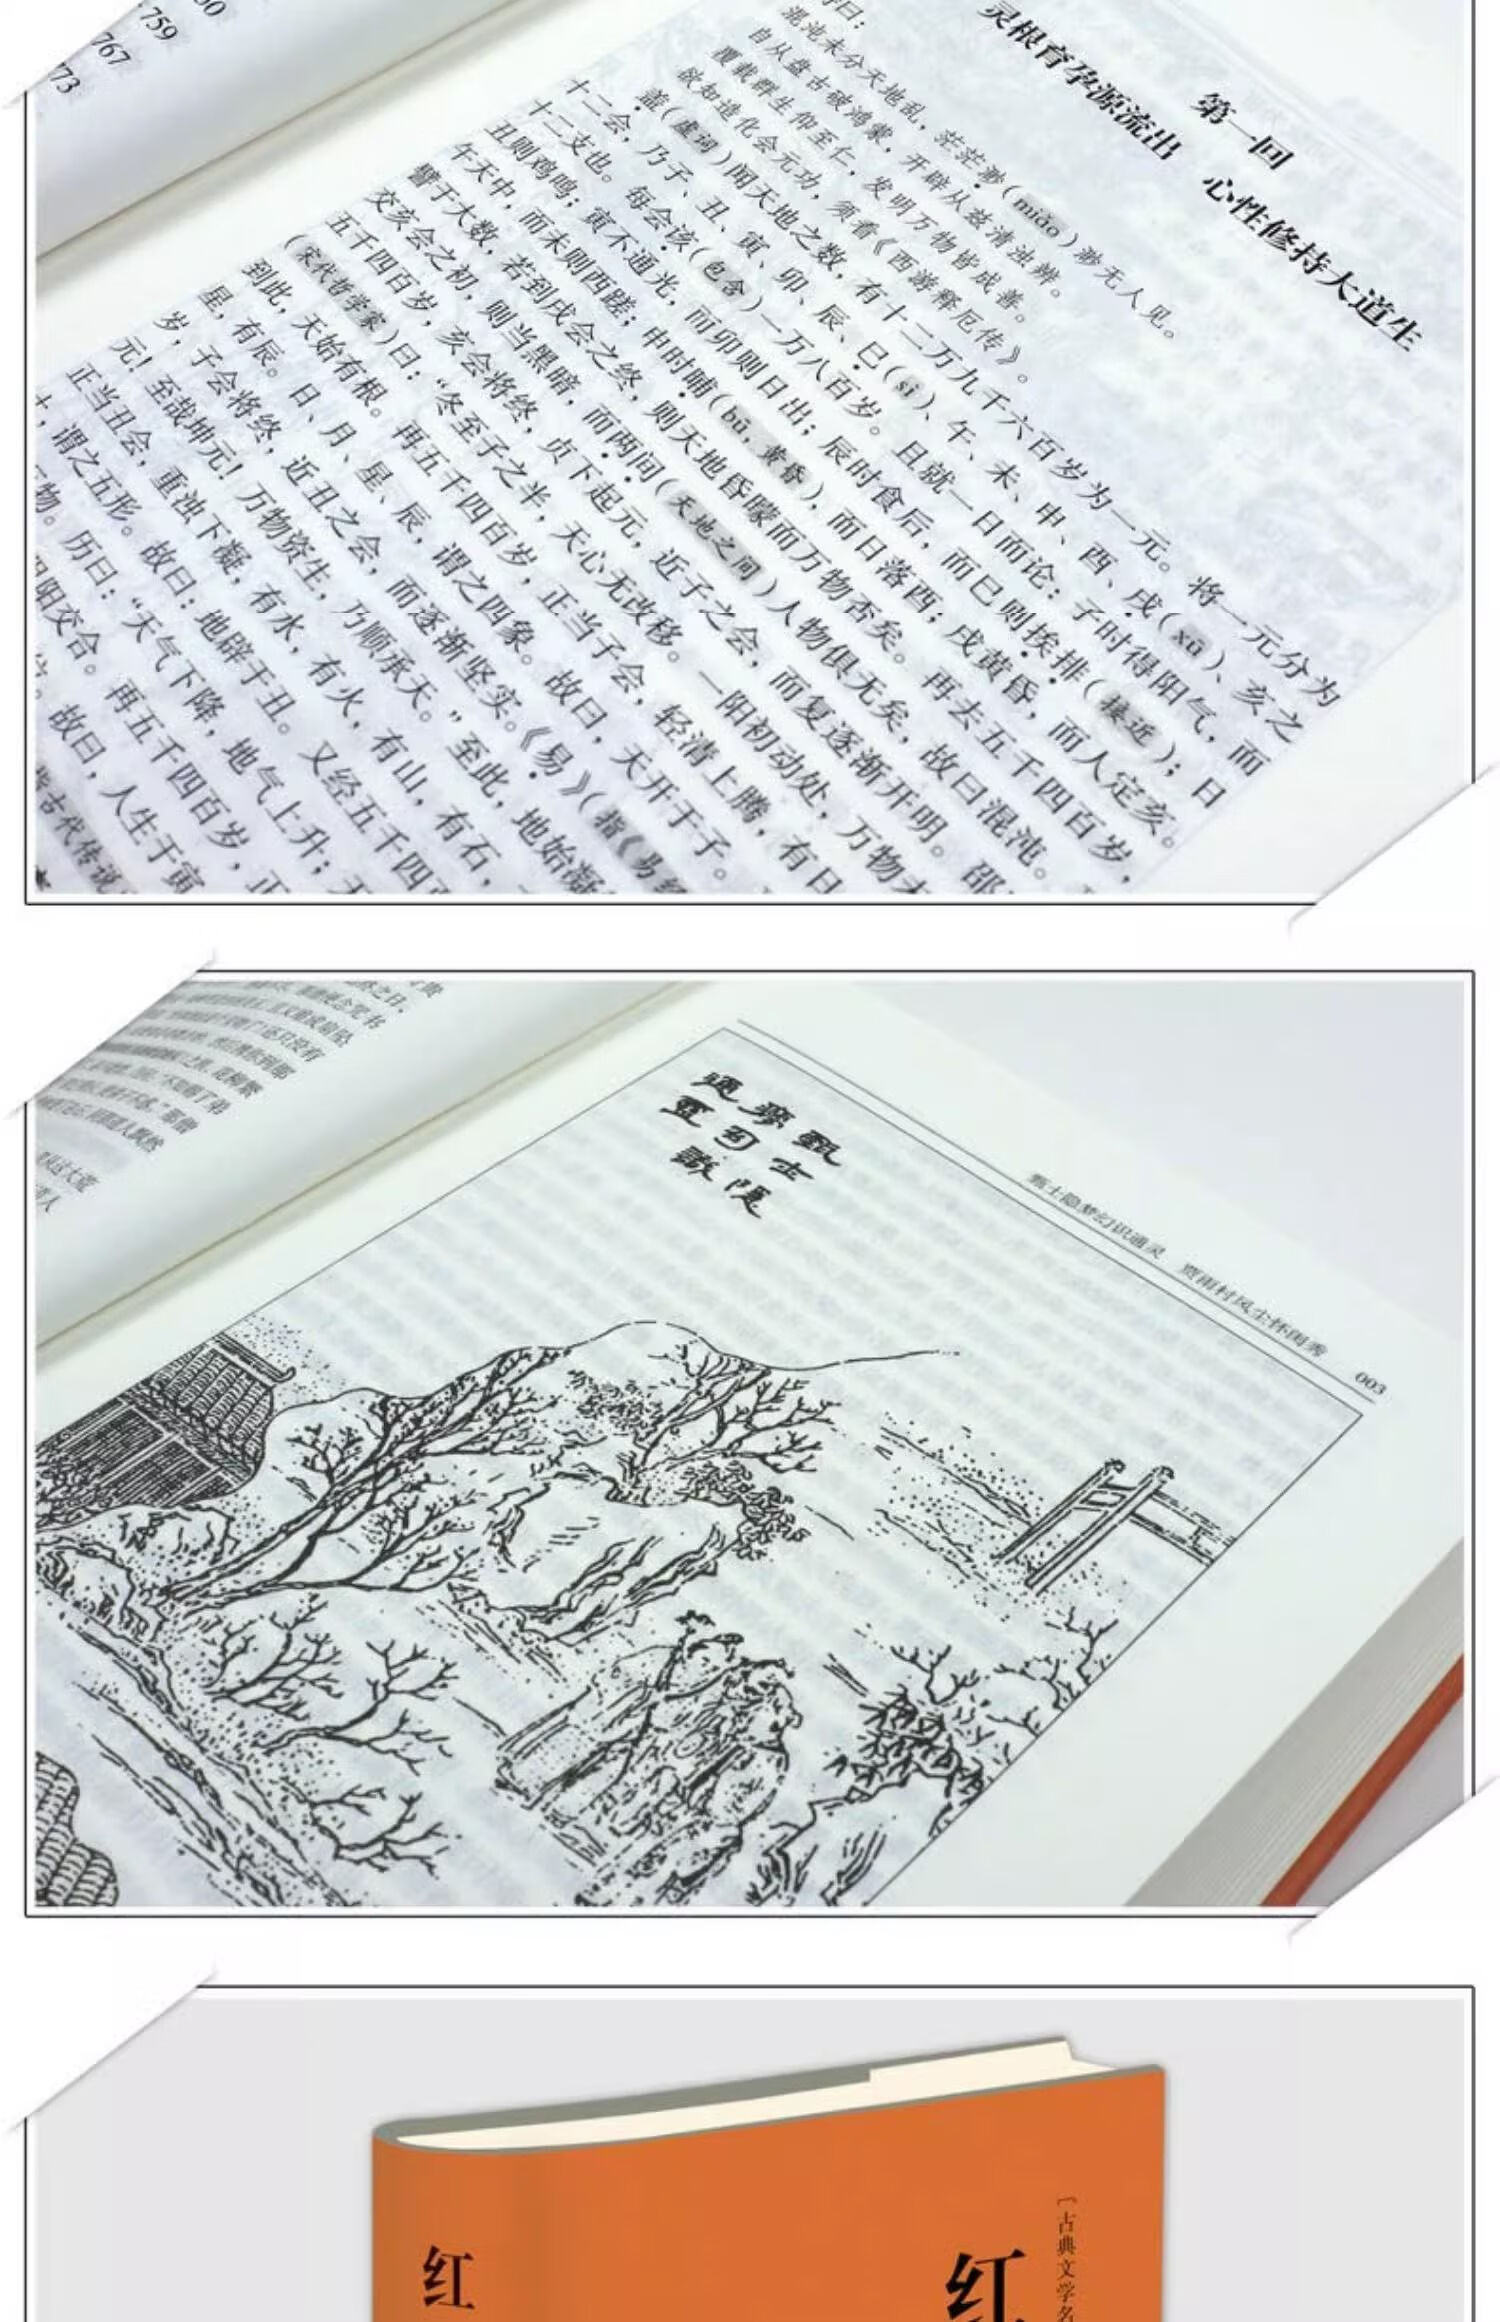 759
767
73
第一回
灵根育孕源流出　心性修持大道生
诗曰：
混沌未分天地乱，茫茫渺(miǎo)渺无人见。
自从盘古破鸿蒙，开辟从兹清浊辨。
覆载群生仰至仁，发明万物皆成善。
欲知造化会元功，须看《西游释厄传》。
盖(虚词)闻天地之数，有十二万九千六百岁为一元。将一元分为
十二会，乃子、丑、寅、卯、辰、巳(sì)、午、未、申、酉、戌(xū)、亥之
十二支也。每会该(包含)一万八百岁。且就一日而论：子时得阳气，而
丑则鸡鸣；寅不通光，而卯则日出；辰时食后，而巳则挨排(接近)；日
午天中，而未则西蹉；申时晡(bū，黄昏)，而日落酉；戌黄昏，而人定亥。
譬于大数，若到戌会之终，则天地昏曚而万物否矣。再去五千四百岁，
交亥会之初，则当黑暗，而两间(天地之间)人物俱无矣，故曰混沌。
五千四百岁，亥会将终，贞下起元，近子之会，而复逐渐开明。邵
(宋代哲学家)曰：“冬至子之半，天心无改移。一阳初动处，万物未
到此，天始有根。再五千四百岁，正当子会，轻清上腾，有日
星，有辰。日、月、星、辰，谓之四象。故曰，天开于子。
岁，子会将终，近丑之会，而逐渐坚实。《易》(指《易经
元！至哉坤元！万物资生，乃顺承天。”至此，地始凝
正当丑会，重浊下凝，有水，有火，有山，有石，
谓之五形。故曰：地辟于丑。又经五千四百
物。历曰：“天气下降，地气上升；天
阴阳交合。再五千四百岁，正
故曰，人生于寅
指古代传说
甄士隐
夢幻識
通靈
甄士隐梦幻识通灵　贾雨村风尘怀闺秀　003
红
红
[古典文学名